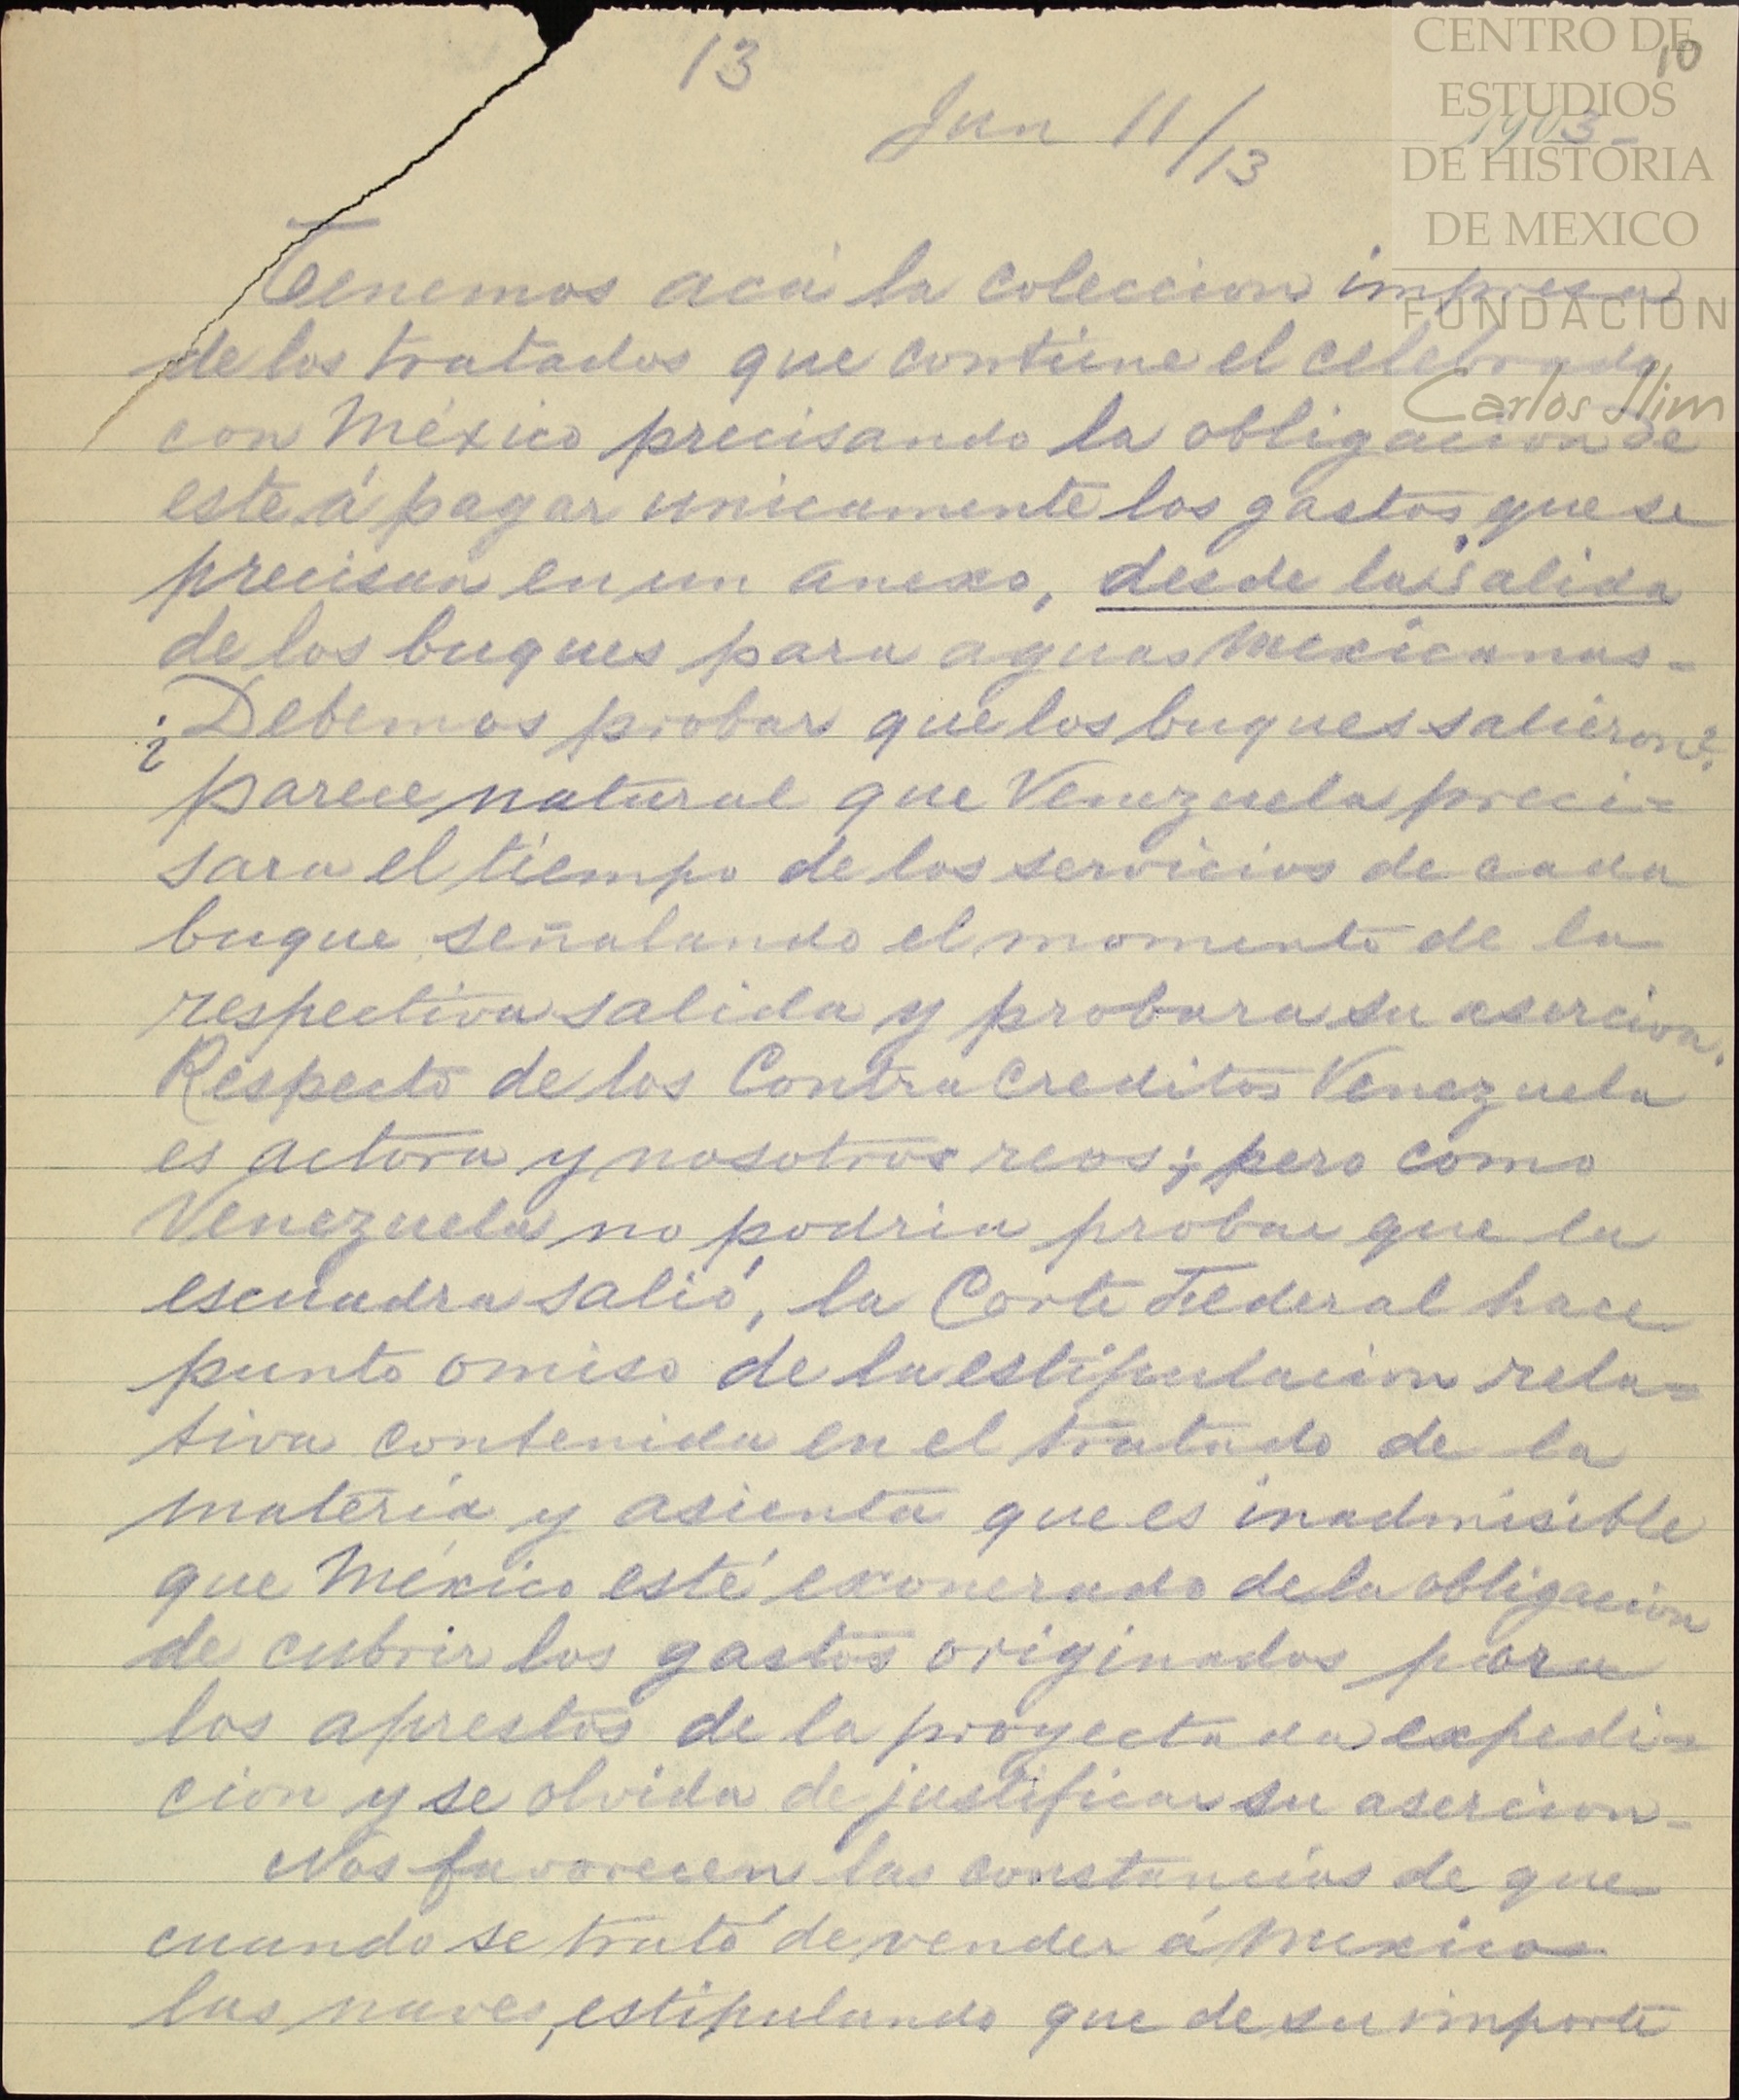 13
10
Jun 11/13
1903-
CENTRO DE
ESTUDIOS
DE HISTORIA
DE MEXICO
FUNDACION
Carlos Slim
Tenemos acá la coleccion impresa
de los tratados que contiene el celebrado
con México precisando la obligacion de
este á pagar unicamente los gastos que se
precisan en un anexo, desde la salida
de los buques para aguas Mexicanas-
¿Debemos probar que los buques salieron?
parece natural que Venezuela preci=
sara el tiempo de los servicios de cada
buque, señalando el momento de la
respectiva salida y probara su asercion.
Respecto de los Contra Creditos Venezuela
es actora y nosotros reos; pero como
Venezuela no podria probar que la
escuadra salió, la Corte Federal hace
punto omiso de la estipulacion rela=
tiva contenida en el tratado de la
materia y asienta que es inadmisible
que México esté exonerado de la obligacion
de cubrir los gastos originados para
los aprestos de la proyectada expedi=
cion y se olvida de justificar su asercion-
Nos favorecen las constancias de que
cuando se trató de vender á Mexico
las naves, estipulando que de su importe